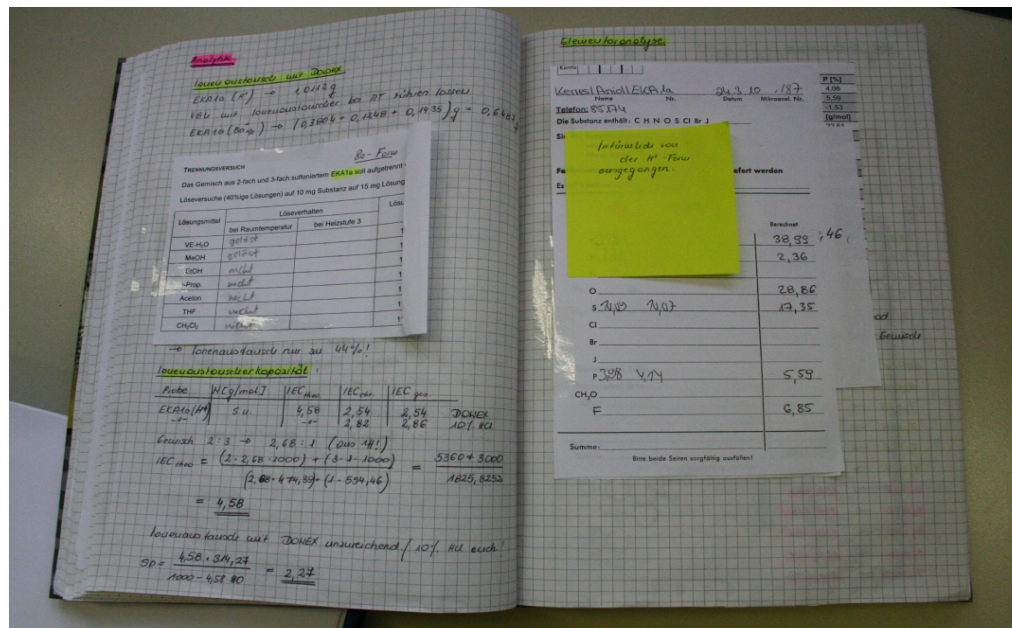 Analytik
Ionenaustausch mit DOWEX
EKA1a (H⁺) → 1,0112 g
48h mit Ionenaustauscher bei RT rühren lassen
→ (0,3804 + 0,1248 + 0,1435) g = 0,6487
Ba-Form
TRENNUNGSVERSUCH
Das Gemisch aus 2-fach und 3-fach sulfoniertem EKA1a soll aufgetrennt
Löseversuche (40%ige Lösungen) auf 10 mg Substanz auf 15 mg Lösung
Lösungsmittel Löseverhalten
bei Raumtemperatur bei Heizstufe 3
VE-H₂O gelöst
MeOH gelöst
EtOH nicht
-Prop. nicht
Aceton nicht
THF nicht
CH₂Cl₂ nicht
→ Ionenaustausch nur zu 44%!
Ionenaustauscherkapazität:
Probe M[g/mol] IEC theo IEC dir. IEC ges
EKA1a(H⁺) s.u. 4,58 2,54 2,54 DOWEX
-"- -"- 2,82 2,86 10% HCl
Gemisch 2:3 → 2,68:1 (aus 1H!)
IEC theo = (2·2,68·1000) + (3·1·1000) = 5360 + 3000
(2,68·474,39) + (1·554,46) 1825,8252
= 4,58
Ionenaustausch mit DOWEX unzureichend / 10% HCl auch!
SD = 4,58·314,27 = 2,27
1000 - 4,58·80
Elementaranalyse
Konto
Kerres/Aniol/EKA1a 24.3.10 187
Name Nr. Datum Mikroanal. Nr.
Telefon: 85174
Die Substanz enthält: C H N O S Cl Br J
P [%]
4,06
5,59
-1,53
[g/mol]
Irrtümlich von
der H⁺-Form
ausgegangen.
efert werden
Berechnet
38,99
2,36
O 28,86
S 17,35
Cl
Br
J
P 3,98 4,14 5,59
CH₃O
F 6,85
Summe:
Bitte beide Seiten sorgfältig ausfüllen!
Gemisch